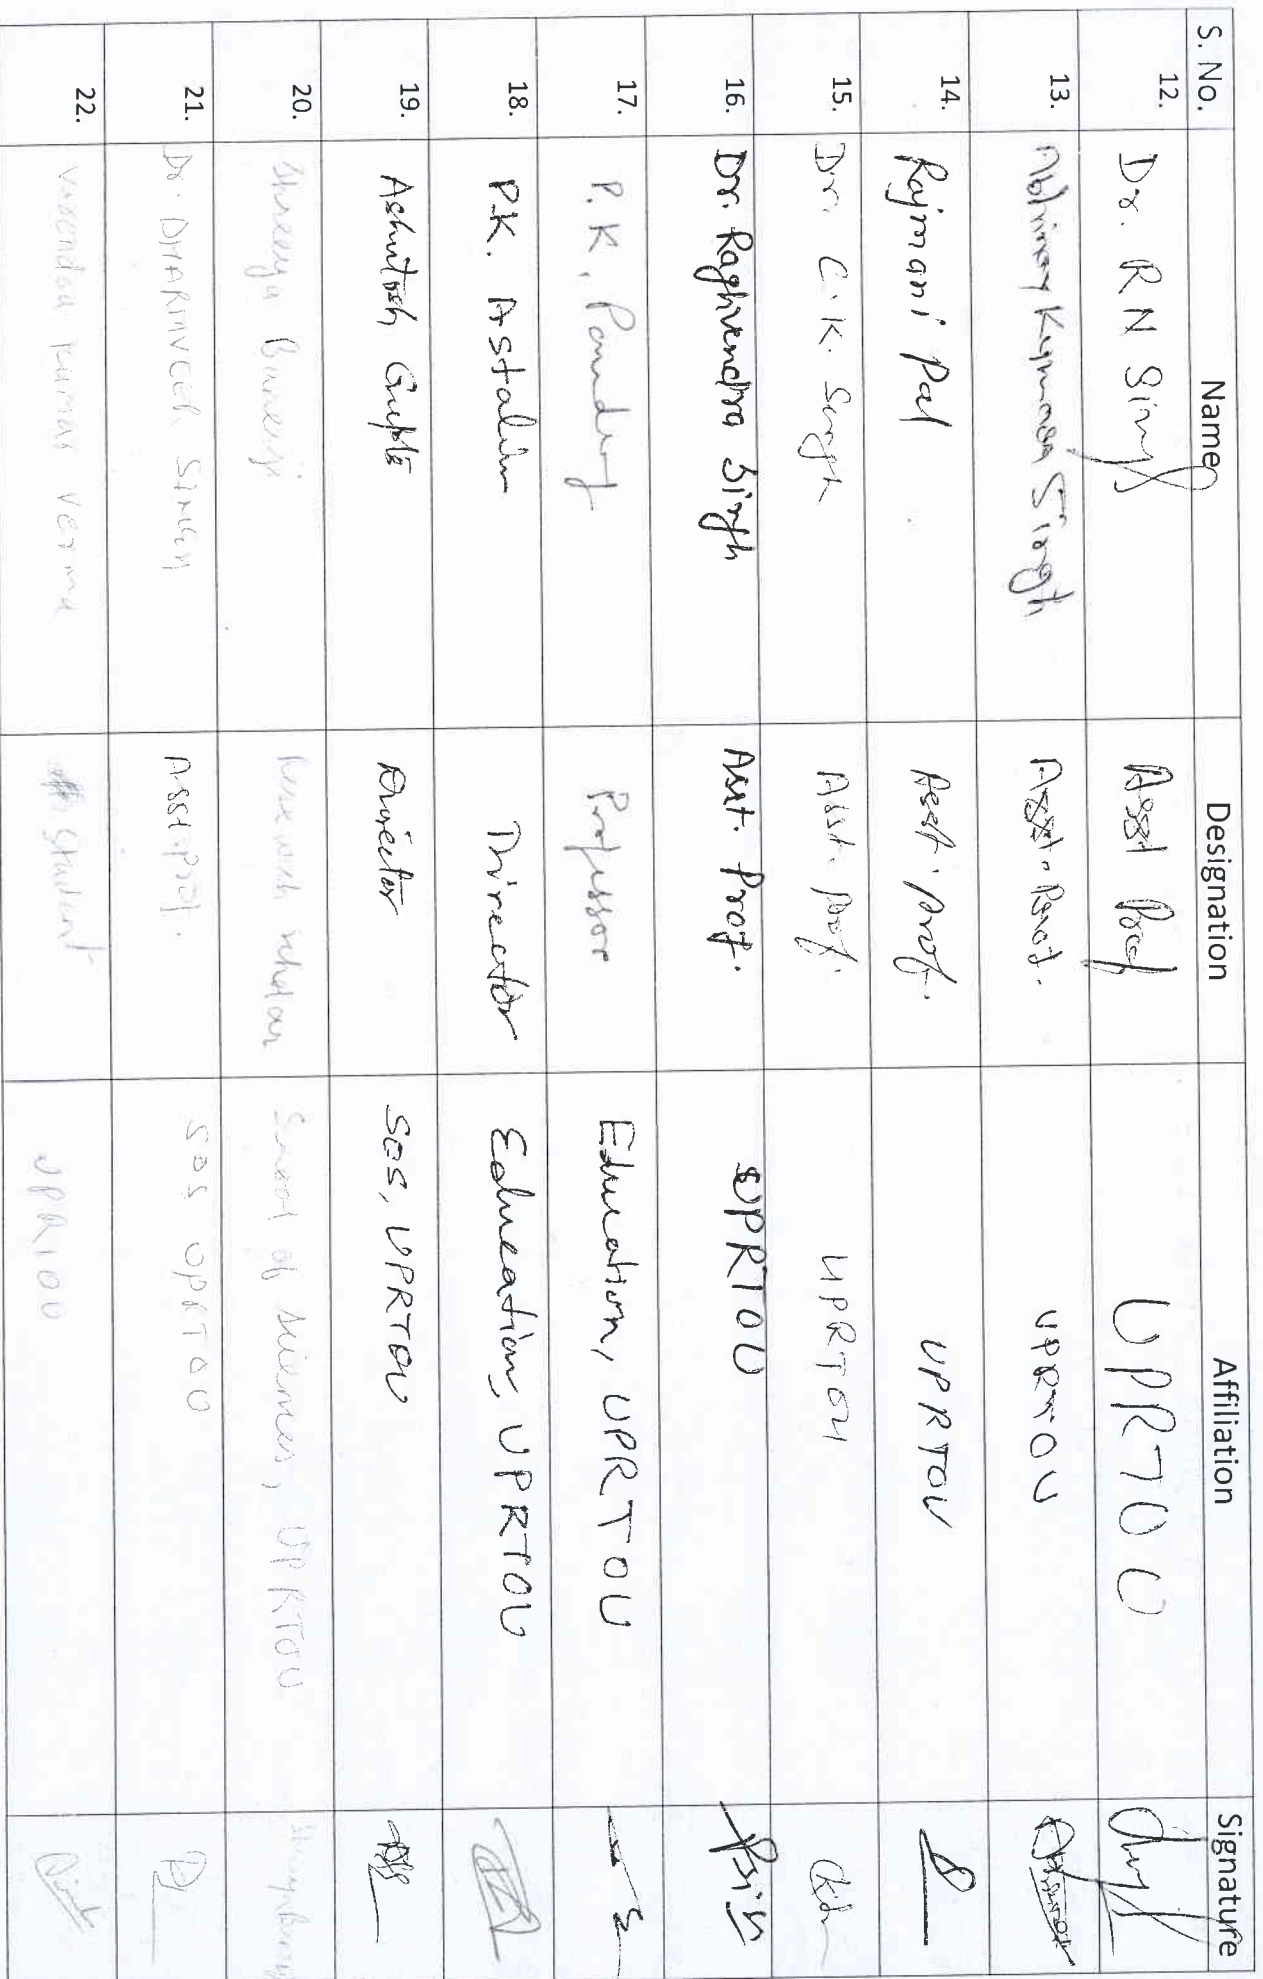 S. No. Name Designation Affiliation Signature
12. Dr. R N Singh Asst Prof UPRTOU
13. Abhinay Kumar Singh Asst. Prof. UPRTOU
14. Rajmani Pal Asst. Prof. UPRTOU
15. Dr. C.K. Singh Asst. Prof. UPRTOU
16. Dr. Raghvendra Singh Asst. Prof. UPRTOU
17. P.K. Pandey Professor Education, UPRTOU
18. P.K. Astalin Director Education, UPRTOU
19. Ashutosh Gupta Director SOS, UPRTOU
20. Shreeya Banerji Research scholar School of sciences, UPRTOU
21. Dr. DHARMVEER SINGH Asst. Prof. SOS UPRTOU
22. Virendra Kumar Verma Student UPRTOU